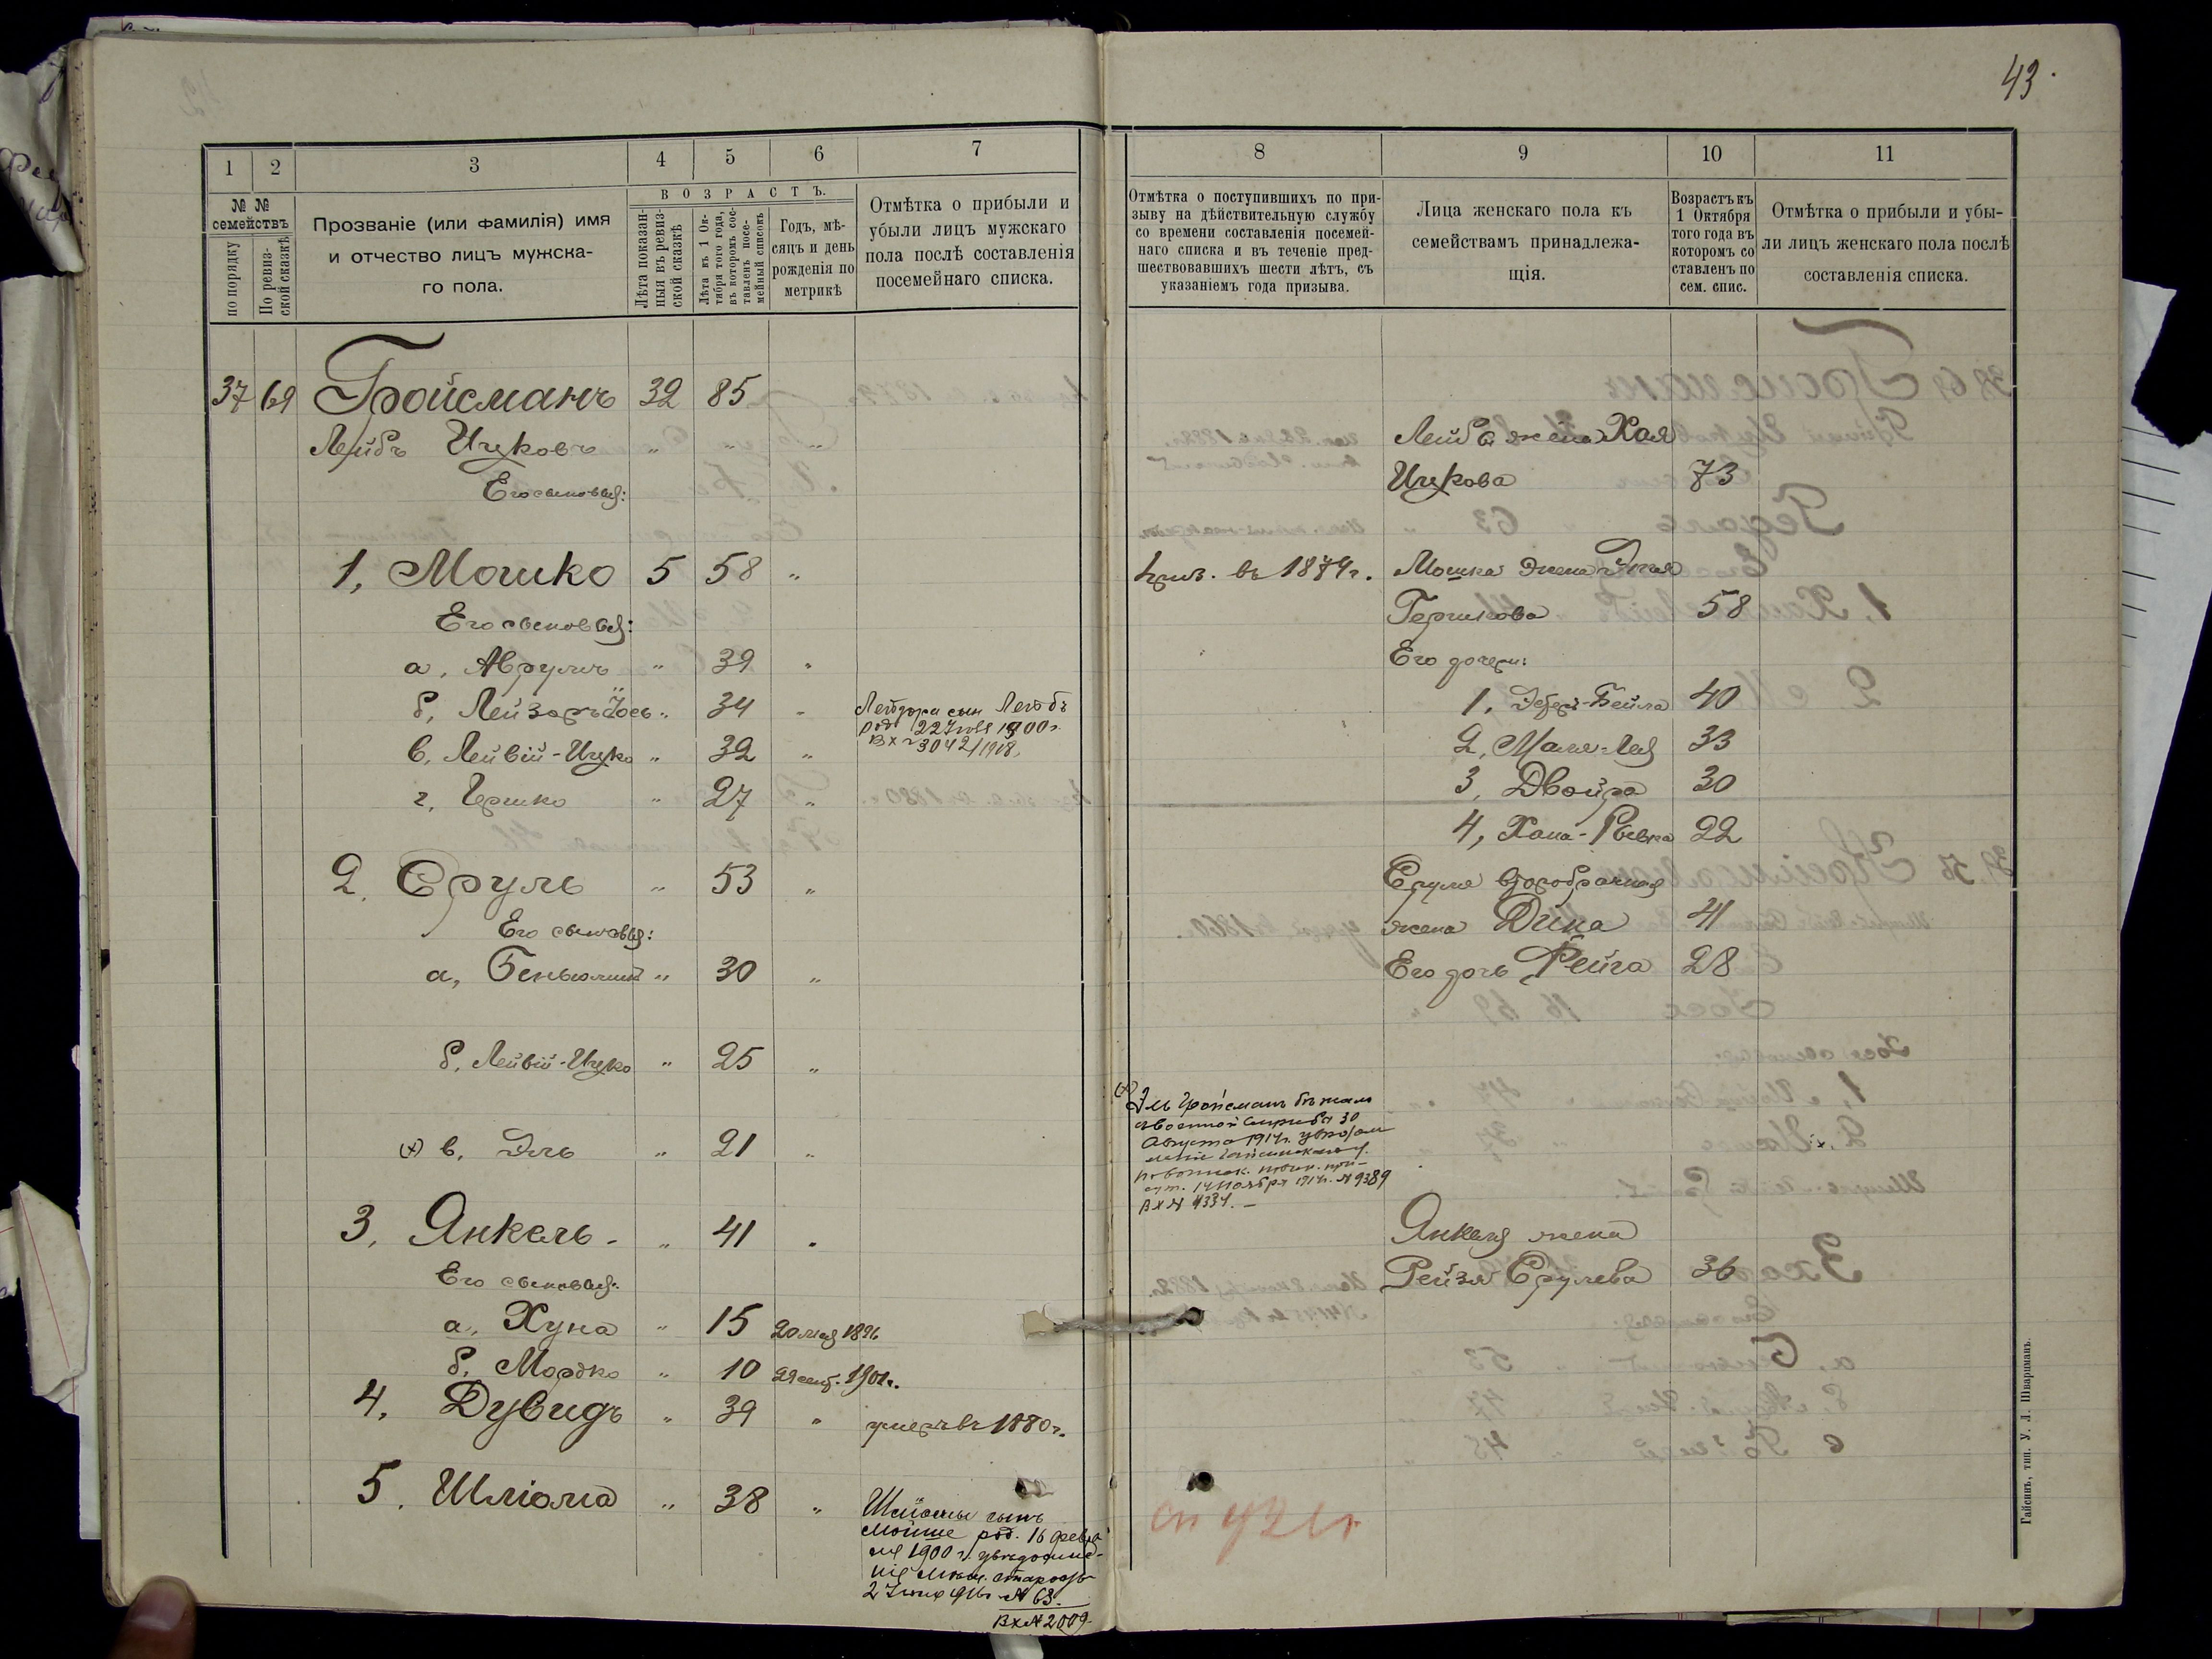 43.
1
2
3
4
5
6
7
№ №
семействъ
по порядку
По ревиз-
ской сказкѣ
Прозваніе (или фамилія) имя
и отчество лицъ мужска-
го пола.
ВОЗРАСТЪ.
Лѣта показан-
ныя въ ревиз-
ской сказкѣ
Лѣта къ 1 Ок-
тября того года,
въ которомъ сос-
тавленъ посе-
мейный списокъ
Годъ, мѣ-
сяцъ и день
рожденія по
метрикѣ
Отмѣтка о прибыли и
убыли лицъ мужскаго
пола послѣ составленія
посемейнаго списка.
37 69 Гройсманъ 32 85
Лейбъ Ицковъ " " "
Его сыновья:
1, Мошко 5 58 "
Его сыновья:
а, Аврумъ " 39 "
б, Лейзоръ Іось " 34 "
Лейзора сын Лейбъ
род. 22 1900г.
Вх 3042/1918.
в, Лейвій-Ицко " 32 "
г, Гершко " 27 "
2. Сруль " 53 "
Его сыновья:
а, Беньюминъ " 30 "
б, Лейвій-Ицко " 25 "
(х) в, Эль " 21 "
3, Янкель " 41 "
Его сыновья:
а, Хуна " 15 20 мая 1896
б, Мордко " 10 29 сент. 1901г.
4, Дувидъ " 39 " умеръ въ 1880г.
5. Шліома " 38 "
Шліомы сынъ
Мойше род. 16 февра
ля 1900 г. увѣдомле-
ніе Мѣщ. старосты
2 Іюня 916г № 63.
Вх № 2009
8
9
10
11
Отмѣтка о поступившихъ по при-
зыву на дѣйствительную службу
со времени составленія посемей-
наго списка и въ теченіе пред-
шествовавшихъ шести лѣтъ, съ
указаніемъ года призыва.
Лица женскаго пола къ
семействамъ принадлежа-
щія.
Возрастъ къ
1 Октября
того года въ
которомъ со
ставленъ по
сем. спис.
Отмѣтка о прибыли и убы-
ли лицъ женскаго пола послѣ
составленія списка.
Лейба жена Хая
Ицкова 73
въ 1879г. Мошка жена
Гершкова 58
Его дочери:
1, Бейла 40
2, Маля-Лея 33
3, Двойра 30
4, Хана-Ривка 22
Сруля второбрачная
жена Дина 41
Его дочь Рейза 28
(х)
Эль Гройсманъ бѣжалъ
съ военной службы 30
Августа 1914г. увѣдом
леніе Гайсинскаго у.
по воинск. повин. при-
сут. 14 Ноября 1914г. № 9389
Вх № 4334. –
Янкеля жена
Рейзя Срулева 36
Гайсинъ, тип. У. Л. Шварцманъ.